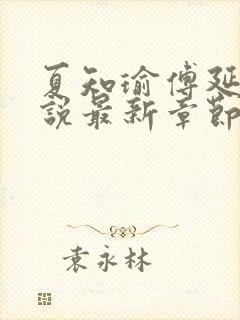 夏知瑜傅延
說最新章節
袁永林